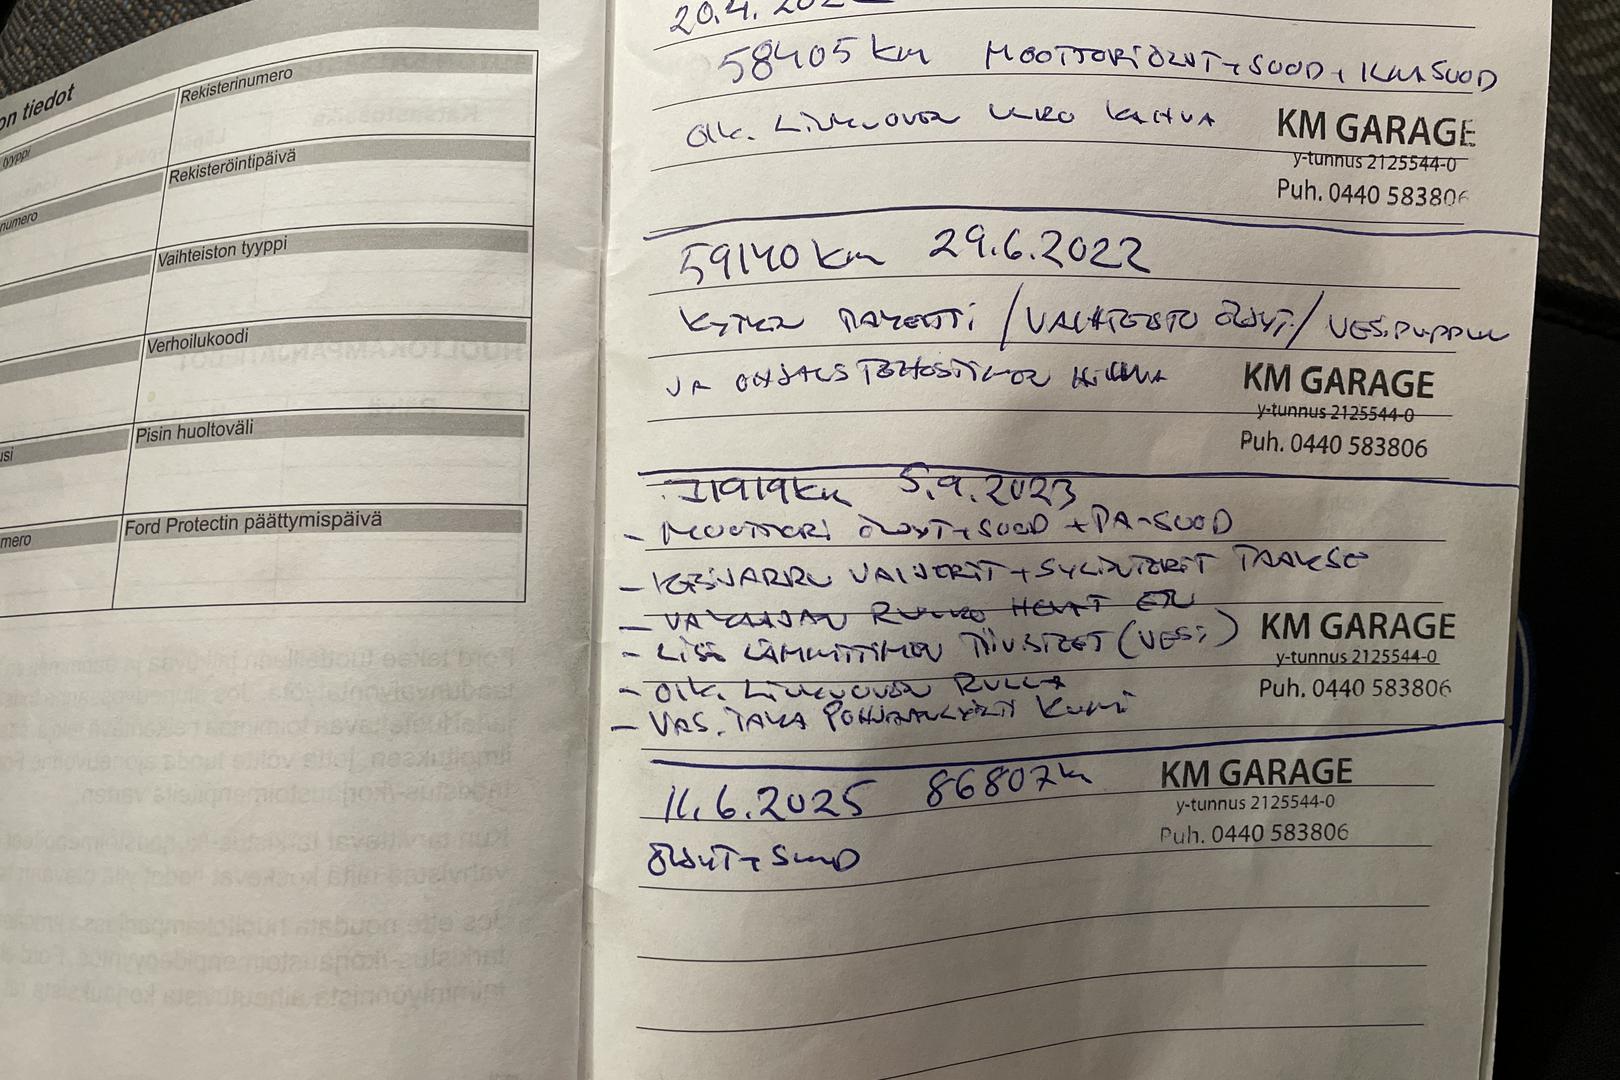 on tiedot
tyyppi
Rekisterinumero
numero
Rekisteröintipäivä
Vaihteiston tyyppi
Verhoilukoodi
usi
Pisin huoltoväli
mero
Ford Protectin päättymispäivä
20.4.202
58405 km MOOTTORIÖLJYT+SUOD+KMSUOD
OIK. LIUKUOVEN ULKO KAHVA
KM GARAGE
y-tunnus 2125544-0
Puh. 0440 583806
59140 km 29.6.2022
KYTKIN PAKETTI / VAIHTEISTO ÖLJYT / VESIPUMPPUN
JA OHJAUSTEHOSTIMEN HIHNA
KM GARAGE
y-tunnus 2125544-0
Puh. 0440 583806
71919 km 5.9.2023
- MOOTTORI ÖLJYT+SUOD +PA-SUOD
- KÄSIJARRU VAIJERIT+SYLINTERIT TAAKSE
- VAKAAJAN HELAT ETU
- LISÄ LÄMMITTIMEN TIIVISTEET (VESI)
- OIK. LIUKUOVEN RULLA
- VAS. TAKA KUMI
KM GARAGE
y-tunnus 2125544-0
Puh. 0440 583806
11.6.2025 86807 km
ÖLJYT+SUOD
KM GARAGE
y-tunnus 2125544-0
Puh. 0440 583806